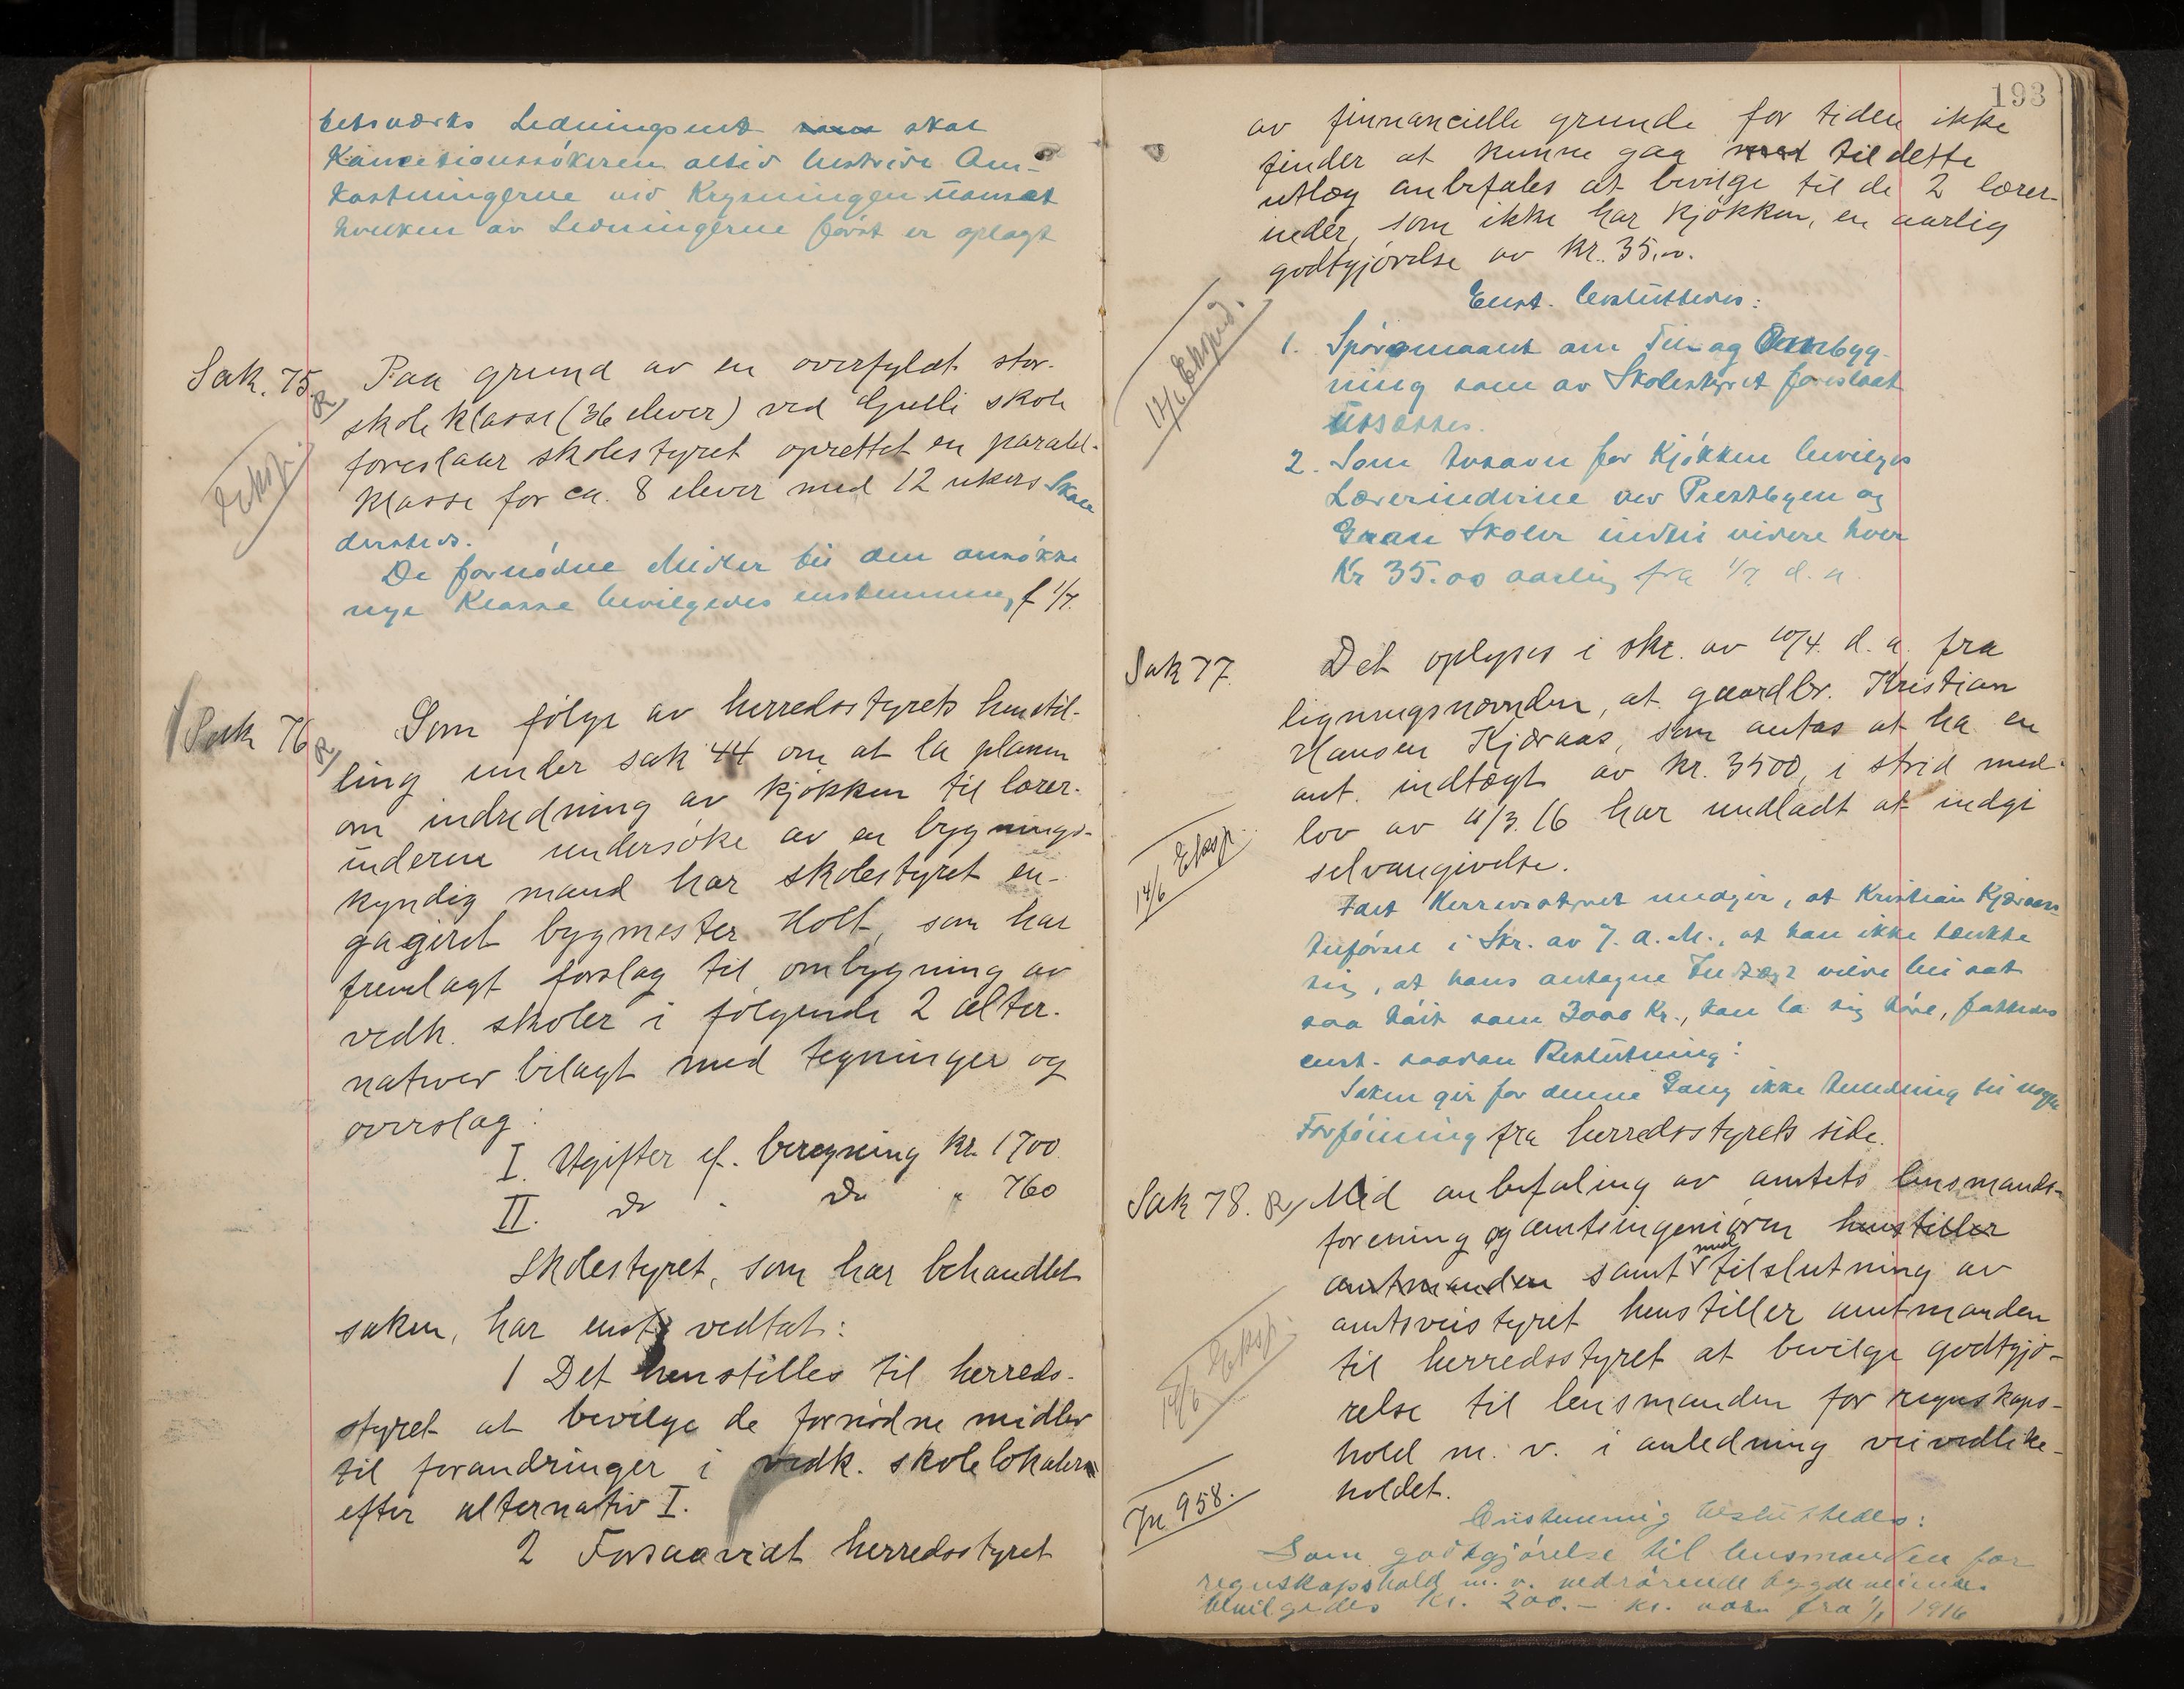 Ledningsnet skal
Koncessionssökeren altid bestride Om-
kostningerne ved Krysningen uanset
hvilken av Ledningerne først er oplagt
Sak. 75. R/
Eksp.
Paa grund av en overfyldt stor-
skoleklasse (36 elever) ved Gjulli skole
foreslaar skolestyret oprettet en paralel-
klasse for ca. 8 elever med 12 ukers Skole
dersteds.
De fornödne Midler til den ansökte
nye Klasse bevilgedes enstemmig f 1/7.
Sak 76 R/
Som følge av herredsstyrets henstil-
ling under sak 44 om at la planen
om indredning av kjøkken til lærer-
inderne undersøke av en bygnings-
kyndig mand har skolestyret en-
gagert bygmester Holt, som har
fremlagt forslag til ombygning av
vedk. skoler i følgende 2 alter-
nativer bilagt med tegninger og
overslag:
I. Utgifter ef. beregning kr. 1700
II. do - do " 760
Skolestyret, som har behandlet
saken, har enst. vedtat:
1 Det henstilles til herreds-
styret at bevilge de fornødne midler
til forandringer i vedk. skolelokaler
efter alternativ I.
2 Forsaavidt herredsstyret
193
av finnancielle grunde for tiden ikke
finder at kunne gaa med til dette
utlæg anbefales at bevilge til de 2 lærer-
inder, som ikke har kjøkken, en aarlig
godtgjørelse av kr. 35.00.
12/6 Eksped.
Enst. besluttedes:
1. Spörsmaalet om Til- og Ombyg-
ning som av Skolestyret foreslaat
utsættes.
2. Som Avsavn for Kjökken bevilges
Lærerinderne ved Prestbyen og
Gran Skoler indtil videre hver
Kr 35.00 aarlig fra 1/7 d. a.
Sak 77.
Det oplyses i skr. av 10/4. d. a. fra
ligningsnævnden, at gaardbr. Kristian
Hansen Kjæraas, som antas at ha en
ant. indtægt av kr. 3500, i strid med
lov av 11/3. 16 har undladt at indgi
selvangivelse.
14/6 Eksp.
Idet Herredsstyret medgir, at Kristian Kjæraas
Anførsel i Skr. av 7. d. M., at han ikke tænkte
sig, at hans antagne Indtægt vilde bli sat
saa høit som 3000 Kr., kan la sig høre, fattedes
enst. saadan Beslutning:
Saken gir for denne Gang ikke Anledning til nogen
Forføining fra herredsstyrets side.
Sak 78. R/
Med anbefaling av amtets lensmands-
forening og amtsingeniøren henstiller
amtmanden samt med tilslutning av
amtsveistyret henstiller amtmanden
til herredsstyret at bevilge godtgjø-
relse til lensmanden for regnskaps-
hold m. v. i anledning veivedlike-
holdet.
14/6 Eksp.
Jn. 958.
Enstemmig besluttedes:
Som godtgjørelse til lensmanden for
regnskapshold m. v. vedrørende bygdeveiene
bevilgedes kr. 200.- kr. aarl. fra 1/1 1916